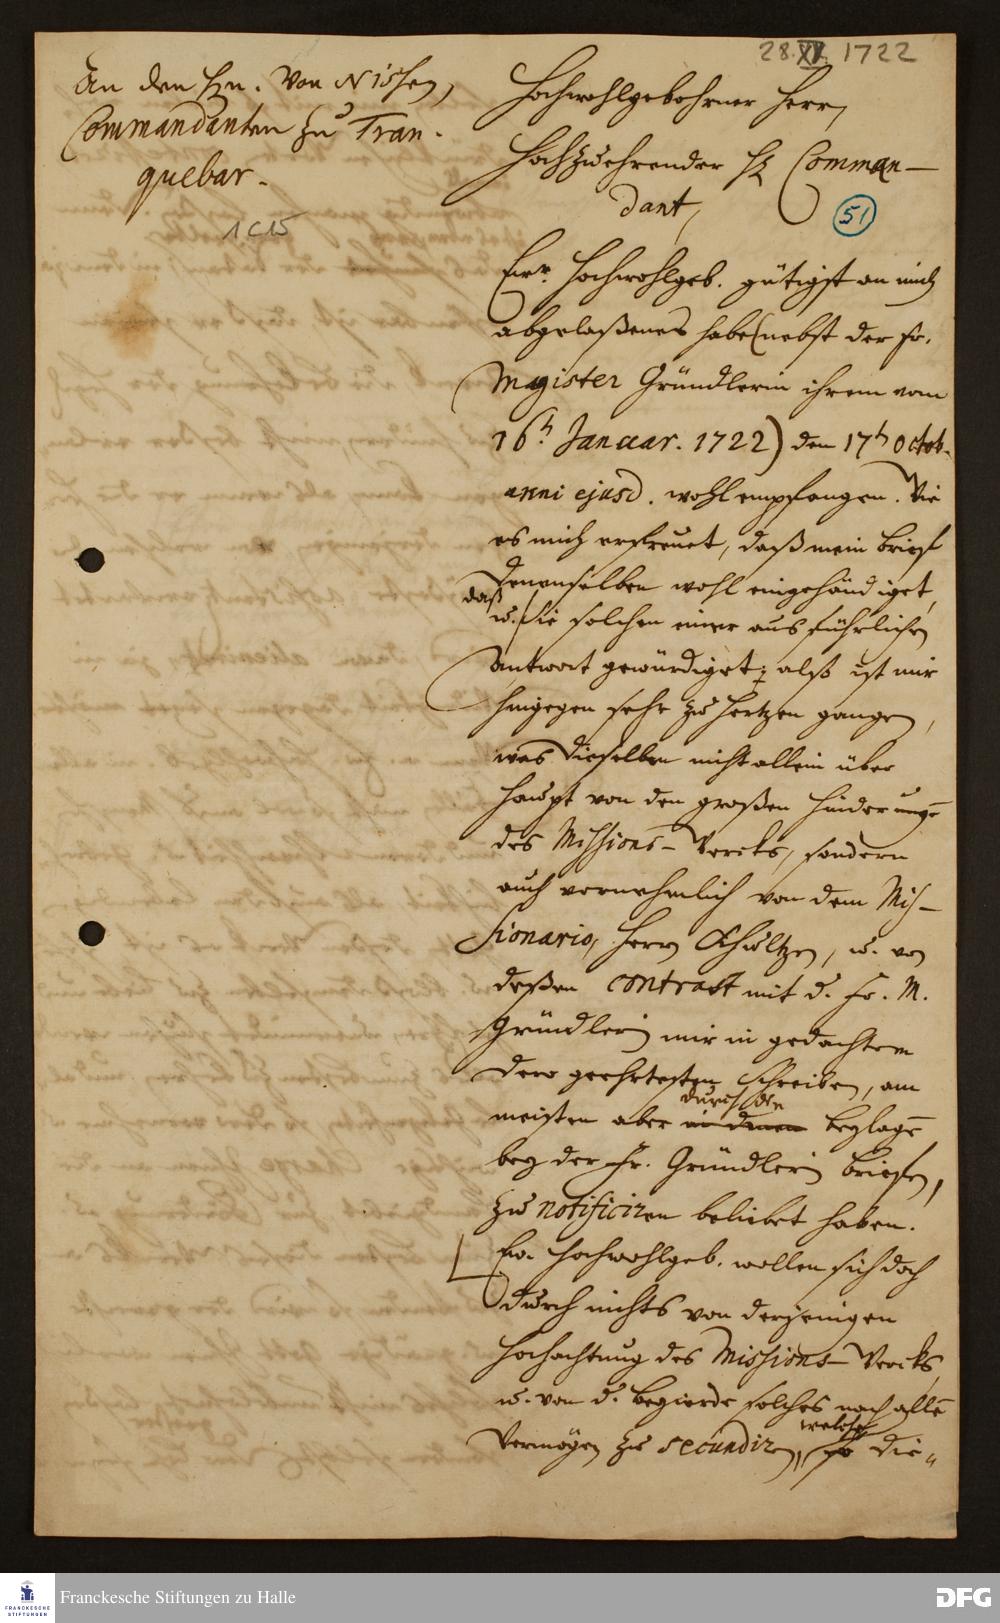 28. XII. 1722
An den Hn. von Nissen,
Commandanten zu Tran-
quebar.
1 C 15
Hochwohlgebohrner Herr,
Hochzuehrender H Comman-
dant,
51
Ewr. Hochwohlgeb. gütigst an mich
abgelaßenes habe (nebst der Fr.
Magister Gründlerin ihrem vom
16t Januar. 1722) den 17t Octob.
anni ejusd. wohl empfangen. Wie
es mich erfreuet, daß mein Brief
Denenselben wohl eingehändiget,
daß
u. Sie solchen einer ausführlichen
Antwort gewürdiget; alß ist mir
hingegen sehr zu Hertzen gangen,
was Dieselben nicht allein über
haupt von den großen Hinderunge
des Missions-Wercks, sondern
auch vornehmlich von dem Mis-
sionario, Herrn Schultzen, u. von
deßen contract mit d. Fr. M.
Gründlerin mir in gedachtem
Dero geehrtesten Schreiben, am
durch die
meisten aber in denen Beylage
bey der Fr. Gründlerin Briefen,
zu notificiren beliebet haben.
Ew. Hochwohlgeb. wollen sich doch
durch nichts von derjenigen
Hochachtung des Missions-Wercks,
u. von d. Begierde solches nach alle
welche
Vermögen zu secundiren, so Die-
Franckesche Stiftungen zu Halle
FRANCKESCHE
STIFTUNGEN
DFG